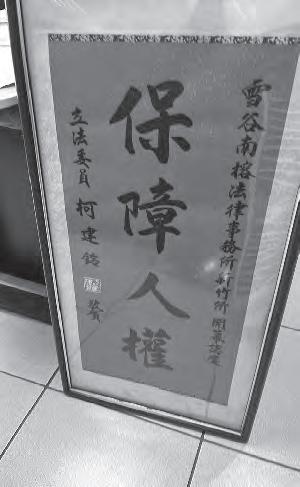 雪谷南榕法律事務所新竹所 開幕誌慶
保障人權
立法委員 柯建銘 敬賀